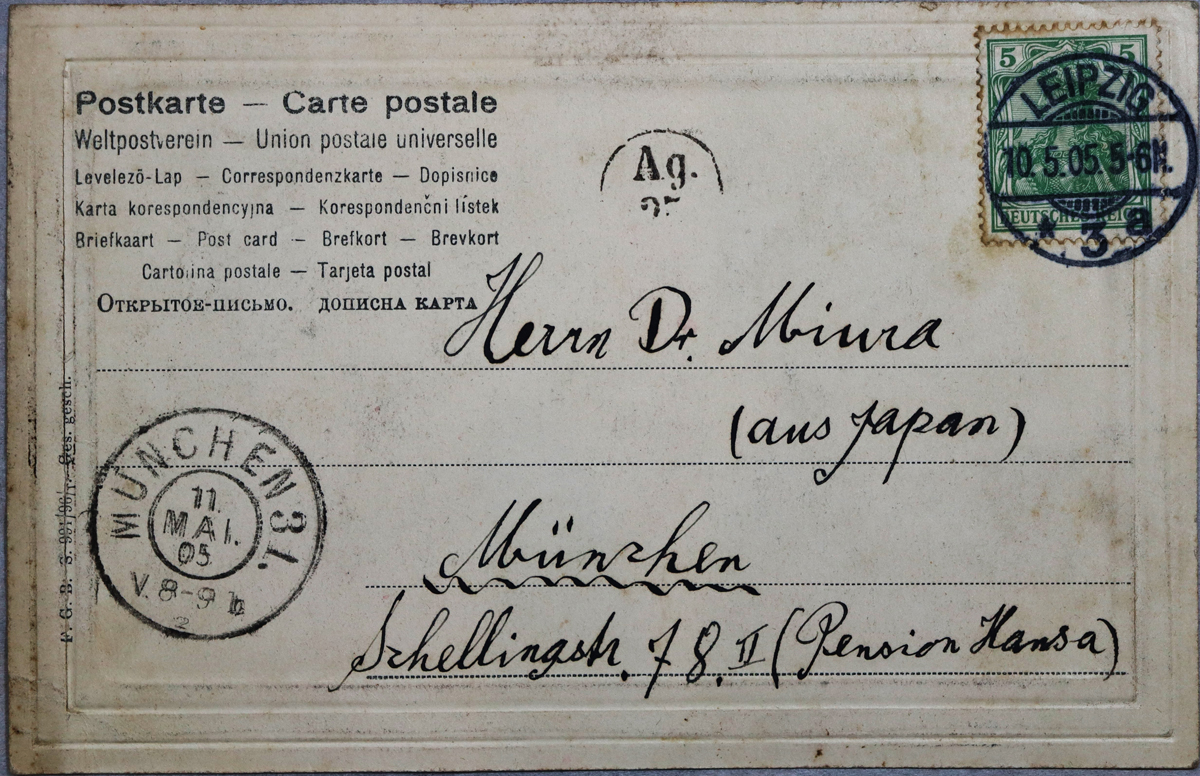 Postkarte — Carte postale
Weltpostverein — Union postale universelle
Levelező-Lap — Correspondenzkarte — Dopisnice
Karta korespondencyjna — Korespondenčni lístek
Briefkaart — Post card — Brefkort — Brevkort
Cartolina postale — Tarjeta postal
Открытое-письмо. дописна карта
Ag.
5 5
DEUTSCHES REICH
LEIPZIG
10.5.05.5-6N.
* 3 a
Herrn Dr. Miura
(aus Japan)
München
Schellingstr. 78. II (Pension Hansa)
MÜNCHEN 31.
11.
MAI.
05
V. 8-9
F. G. B. S. Ges. gesch.